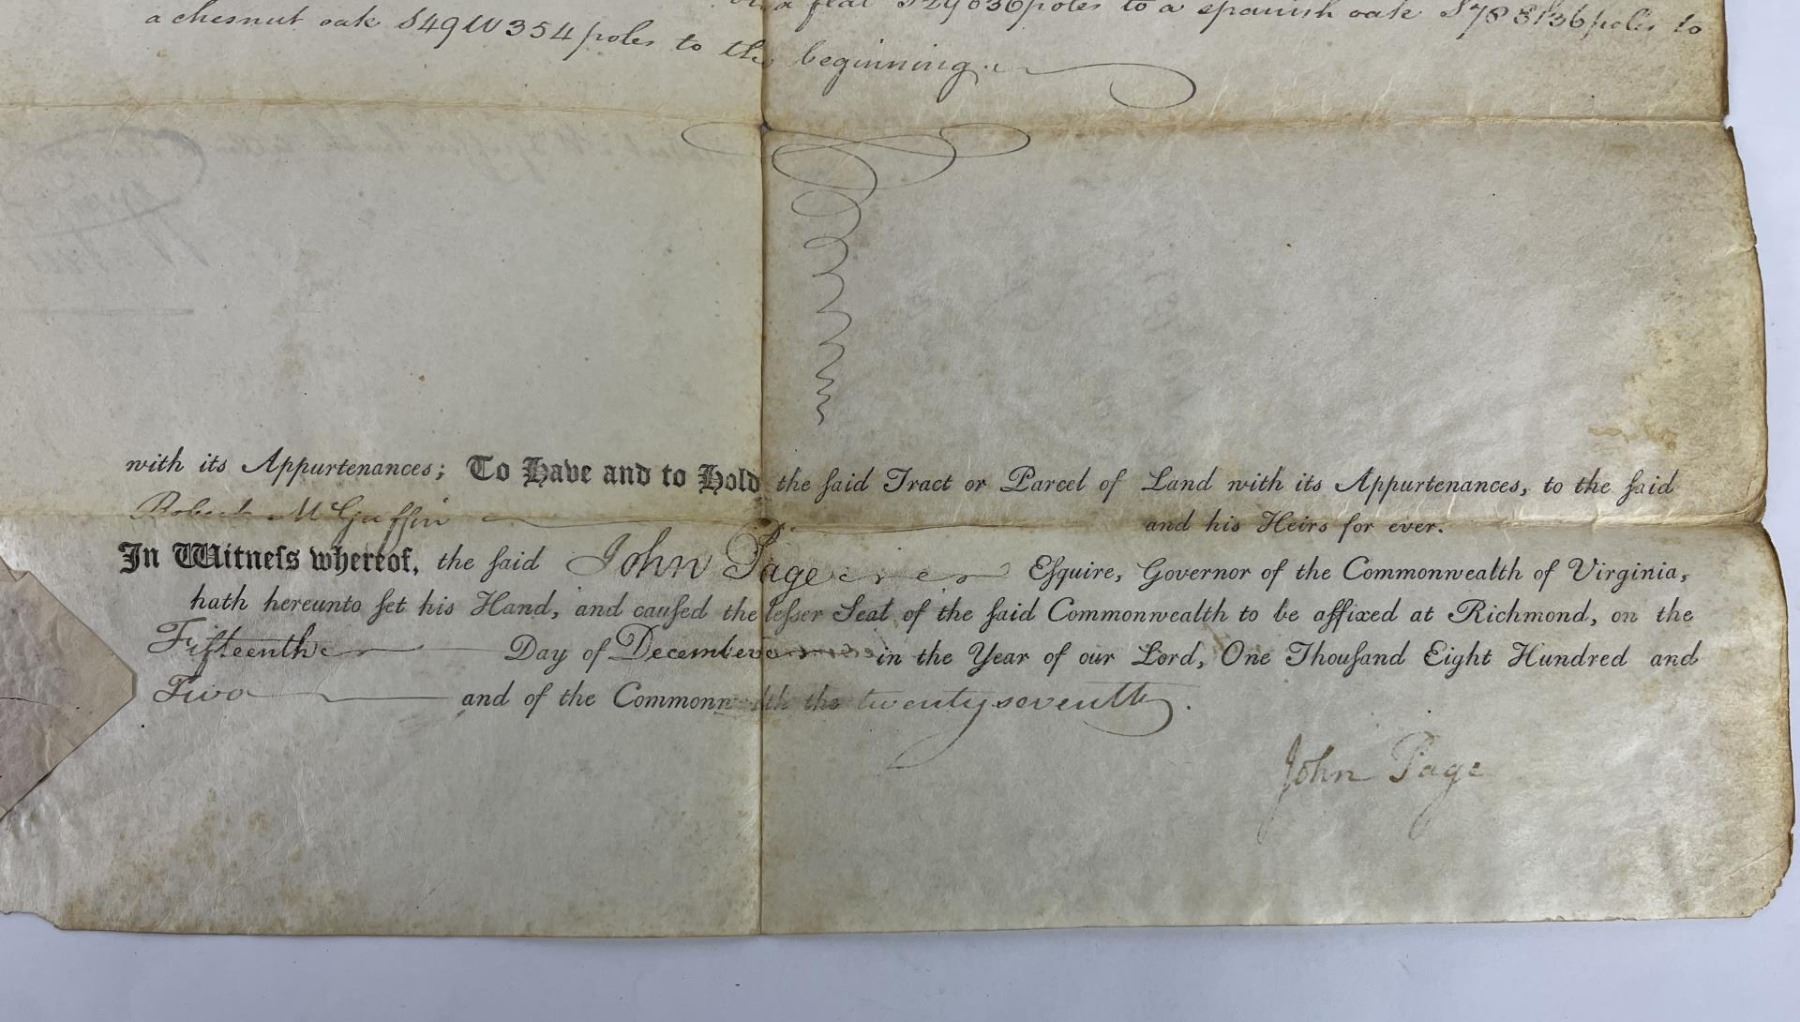 on a flat S29 E36 poles to a spanish oak S78 E136 poles to
a chesnut oak S49 W 354 poles to the beginning.
with its Appurtenances; To Have and to Hold the ſaid Tract or Parcel of Land with its Appurtenances, to the ſaid
Robert McGuffin and his Heirs for ever.
In Witneſs whereof, the ſaid John Page Eſquire, Governor of the Commonwealth of Virginia,
hath hereunto ſet his Hand, and cauſed the leſſer Seal of the ſaid Commonwealth to be affixed at Richmond, on the
Fifteenth Day of December in the Year of our Lord, One Thouſand Eight Hundred and
Two and of the Commonwealth the twenty seventh.
John Page